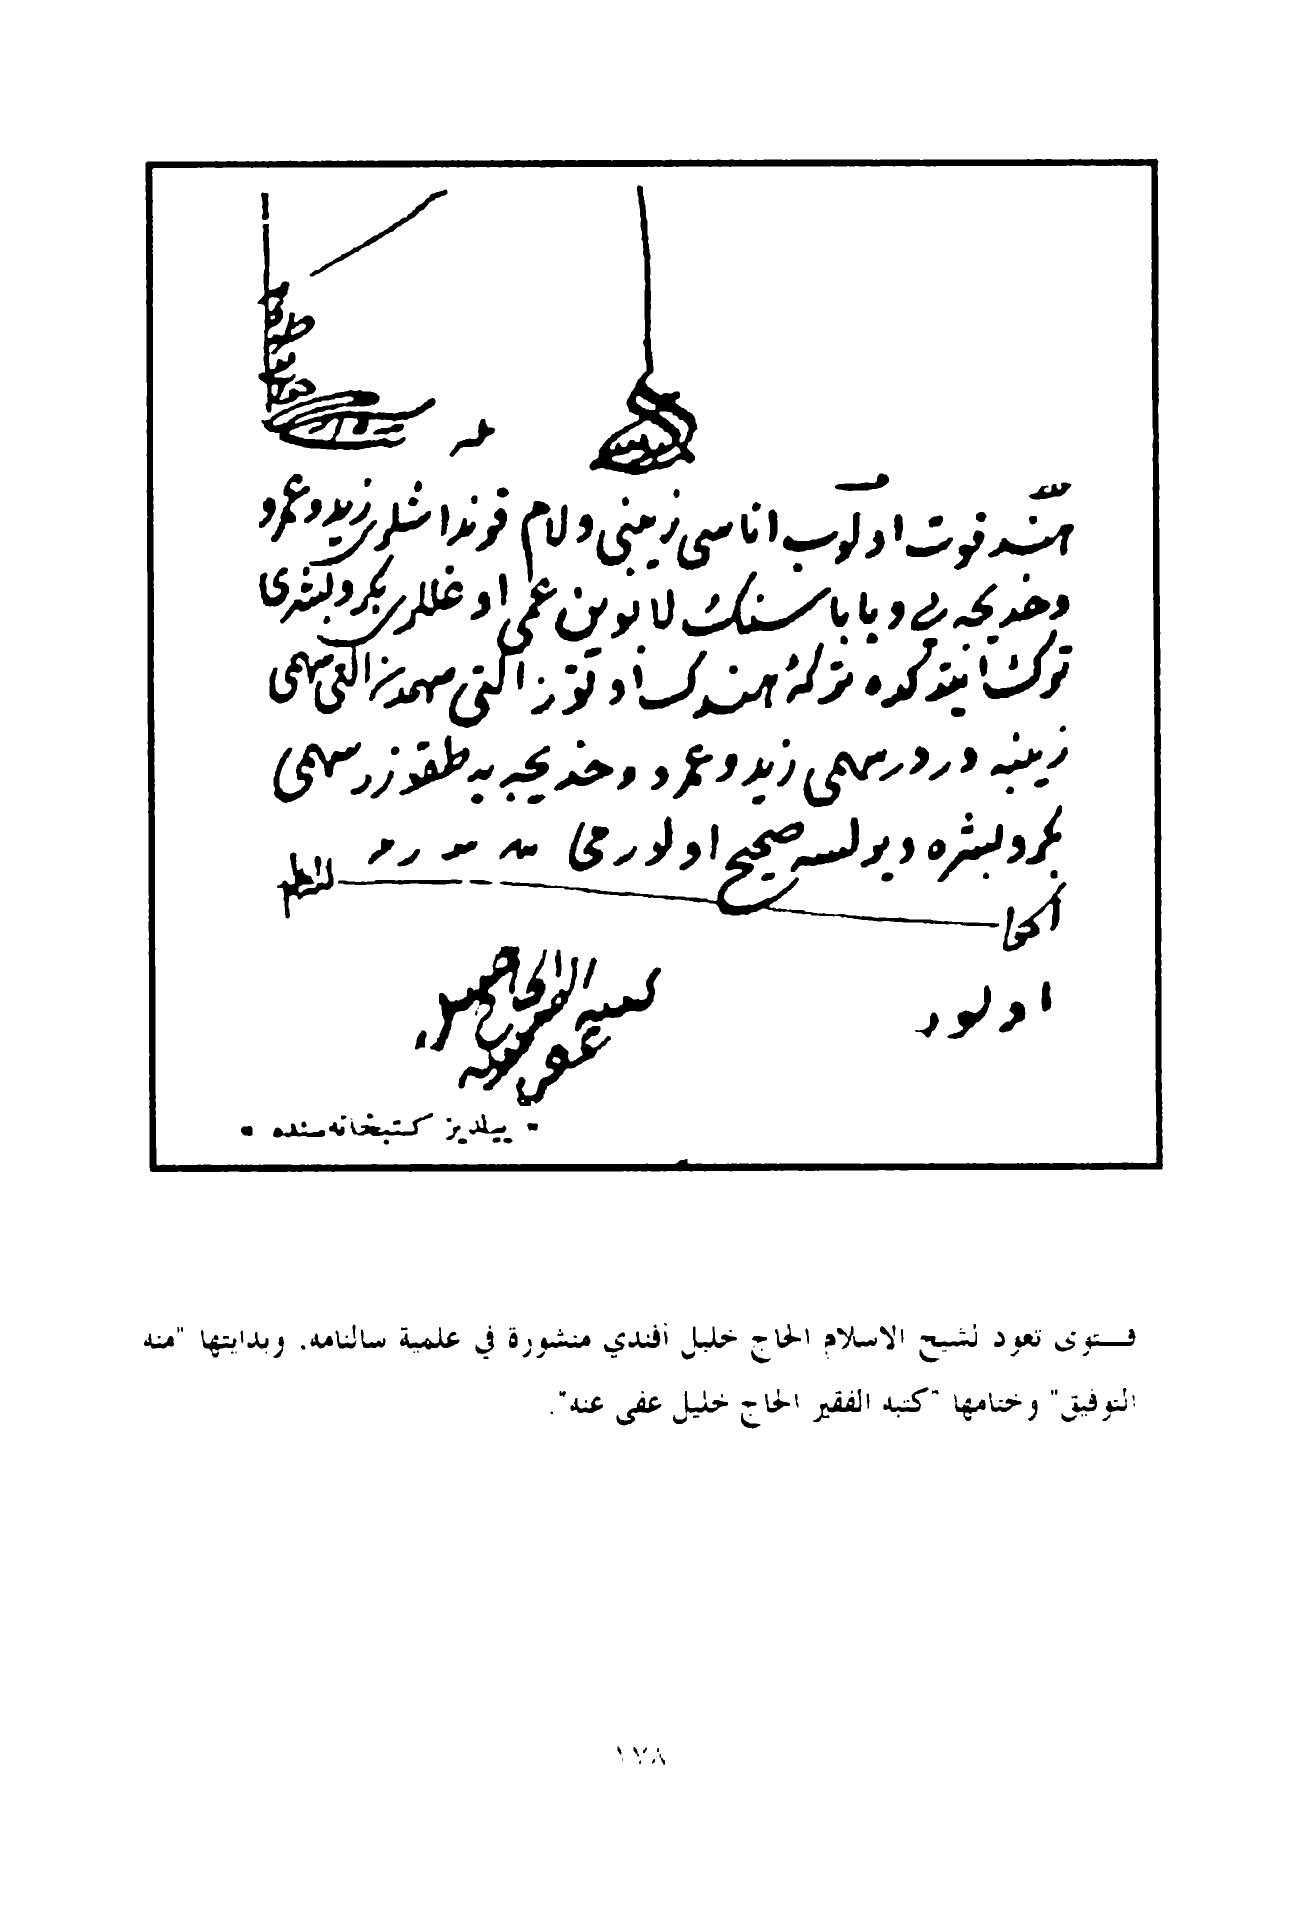 هند فوت اولوب اناسى زينبى و لام قرنداشلرى زيد و عمرو
و خديجه يى و باباسنك لابوين عمى اوغللرى بكر و بشرى
ترك ايتدكده تركۀ هندك اوتوز التى سهمدن التى سهمى
زينبه درر سهمى زيد و عمرو و خديجه يه طقوزر سهمى
بكر و بشره ويرلسه صحيح اولورمى
الجواب
اولور
كتبه الفقير الحاج خليل
عفى عنه
« ييلديز كتبخانه سنده »
فــتوى تعود لشيح الاسلام الحاج خليل أفندي منشورة في علمية سالنامه. وبدايتها "منه
التوفيق" وختامها "كتبه الفقير الحاج خليل عفى عنه".
١٧٨